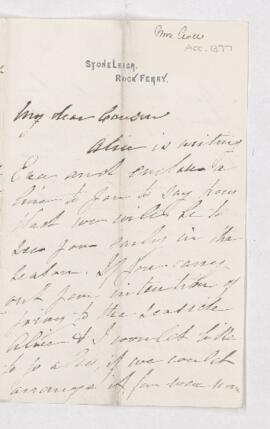 Mrs Croll
Acc. 1377
STONELEIGH,
ROCK FERRY.
My dear Cousin
Alice is writing
Eva and enclose a
line to you to say how
glad we will be to
see you early in the
season. If you carry
out your intention of
going to the seaside
Alice & I would like
to go also, if we could
arrange it